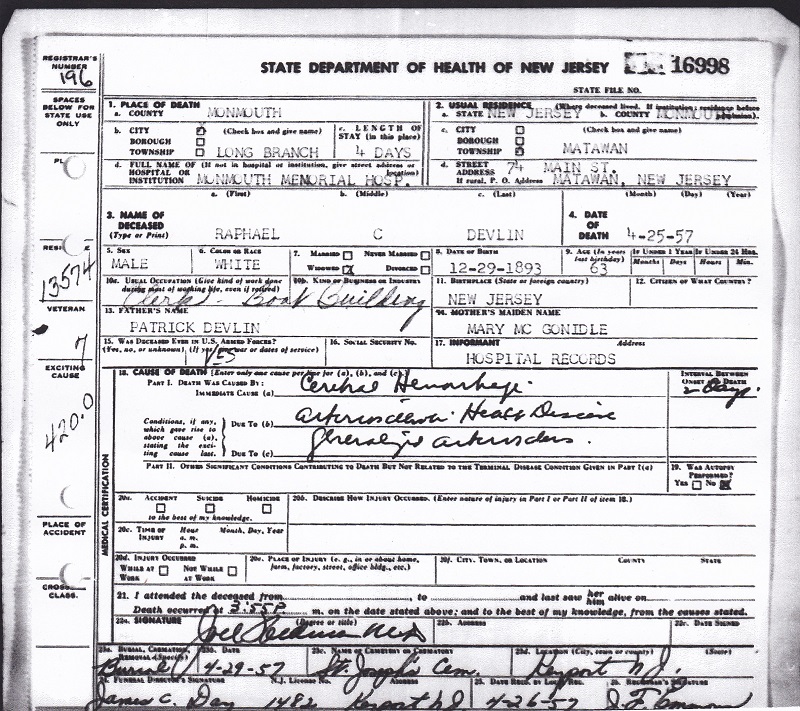 REGISTRAR'S NUMBER
196
STATE DEPARTMENT OF HEALTH OF NEW JERSEY 16998
STATE FILE NO.
SPACES BELOW FOR STATE USE ONLY
1. PLACE OF DEATH
a. COUNTY MONMOUTH
2. USUAL RESIDENCE (Where deceased lived. If institution: residence before admission).
a. STATE NEW JERSEY b. COUNTY MONMOUTH
b. CITY (Check box and give name)
BOROUGH
TOWNSHIP LONG BRANCH
c. LENGTH OF STAY (in this place)
4 DAYS
c. CITY (Check box and give name)
BOROUGH
TOWNSHIP MATAWAN
d. FULL NAME OF (If not in hospital or institution, give street address or location)
HOSPITAL OR
INSTITUTION MONMOUTH MEMORIAL HOSP.
d. STREET ADDRESS 74 MAIN ST.
If rural, P. O. Address MATAWAN, NEW JERSEY
a. (First) b. (Middle) c. (Last) (Month) (Day) (Year)
3. NAME OF DECEASED
(Type or Print) RAPHAEL C DEVLIN
4. DATE OF DEATH 4-25-57
5. SEX
MALE
6. COLOR OR RACE
WHITE
7. MARRIED NEVER MARRIED
WIDOWED X DIVORCED
8. DATE OF BIRTH
12-29-1893
9. AGE (In years last birthday)
63
IF UNDER 1 YEAR
Months Days
IF UNDER 24 HRS.
Hours Min.
13574
10a. USUAL OCCUPATION (Give kind of work done during most of working life, even if retired)
Clerk
10b. KIND OF BUSINESS OR INDUSTRY
Boat Building
11. BIRTHPLACE (State or foreign country)
NEW JERSEY
12. CITIZEN OF WHAT COUNTRY?
VETERAN
7
13. FATHER'S NAME
PATRICK DEVLIN
14. MOTHER'S MAIDEN NAME
MARY MC GONIDLE
15. WAS DECEASED EVER IN U.S. ARMED FORCES?
(Yes, no, or unknown) (If yes, give war or dates of service)
YES
16. SOCIAL SECURITY NO.
17. INFORMANT Address
HOSPITAL RECORDS
EXCITING CAUSE
420.0
18. CAUSE OF DEATH [Enter only one cause per line for (a), (b), and (c).]
PART I. DEATH WAS CAUSED BY:
IMMEDIATE CAUSE (a)
INTERVAL BETWEEN ONSET AND DEATH
2 Days.
Conditions, if any, which gave rise to above cause (a), stating the exciting cause last.
DUE TO (b)
DUE TO (c)
PART II. OTHER SIGNIFICANT CONDITIONS CONTRIBUTING TO DEATH BUT NOT RELATED TO THE TERMINAL DISEASE CONDITION GIVEN IN PART I(a)
19. WAS AUTOPSY PERFORMED?
YES NO
MEDICAL CERTIFICATION
20a. ACCIDENT SUICIDE HOMICIDE
to the best of my knowledge.
20b. DESCRIBE HOW INJURY OCCURRED. (Enter nature of injury in Part I or Part II of item 18.)
PLACE OF ACCIDENT
20c. TIME OF INJURY Hour a. m. p. m. Month, Day, Year
20d. INJURY OCCURRED
WHILE AT WORK NOT WHILE AT WORK
20e. PLACE OF INJURY (e. g., in or about home, farm, factory, street, office bldg., etc.)
20f. CITY, TOWN, OR LOCATION COUNTY STATE
CROSS CLASS.
21. I attended the deceased from to and last saw her him alive on
Death occurred at 3:55P. m. on the date stated above; and to the best of my knowledge, from the causes stated.
22a. SIGNATURE (Degree or title)
22b. ADDRESS
22c. DATE SIGNED
23a. BURIAL, CREMATION, REMOVAL (Specify)
Burial
23b. DATE
4-29-57
23c. NAME OF CEMETERY OR CREMATORY
St. Joseph's Cem.
23d. LOCATION (City, town or county) (State)
Keyport N.J.
24. FUNERAL DIRECTOR'S SIGNATURE N.J. LICENSE NO. ADDRESS
James C. Day 1482 Keyport NJ
25. DATE RECD. BY LOCAL REG.
4-26-57
26. REGISTRAR'S SIGNATURE